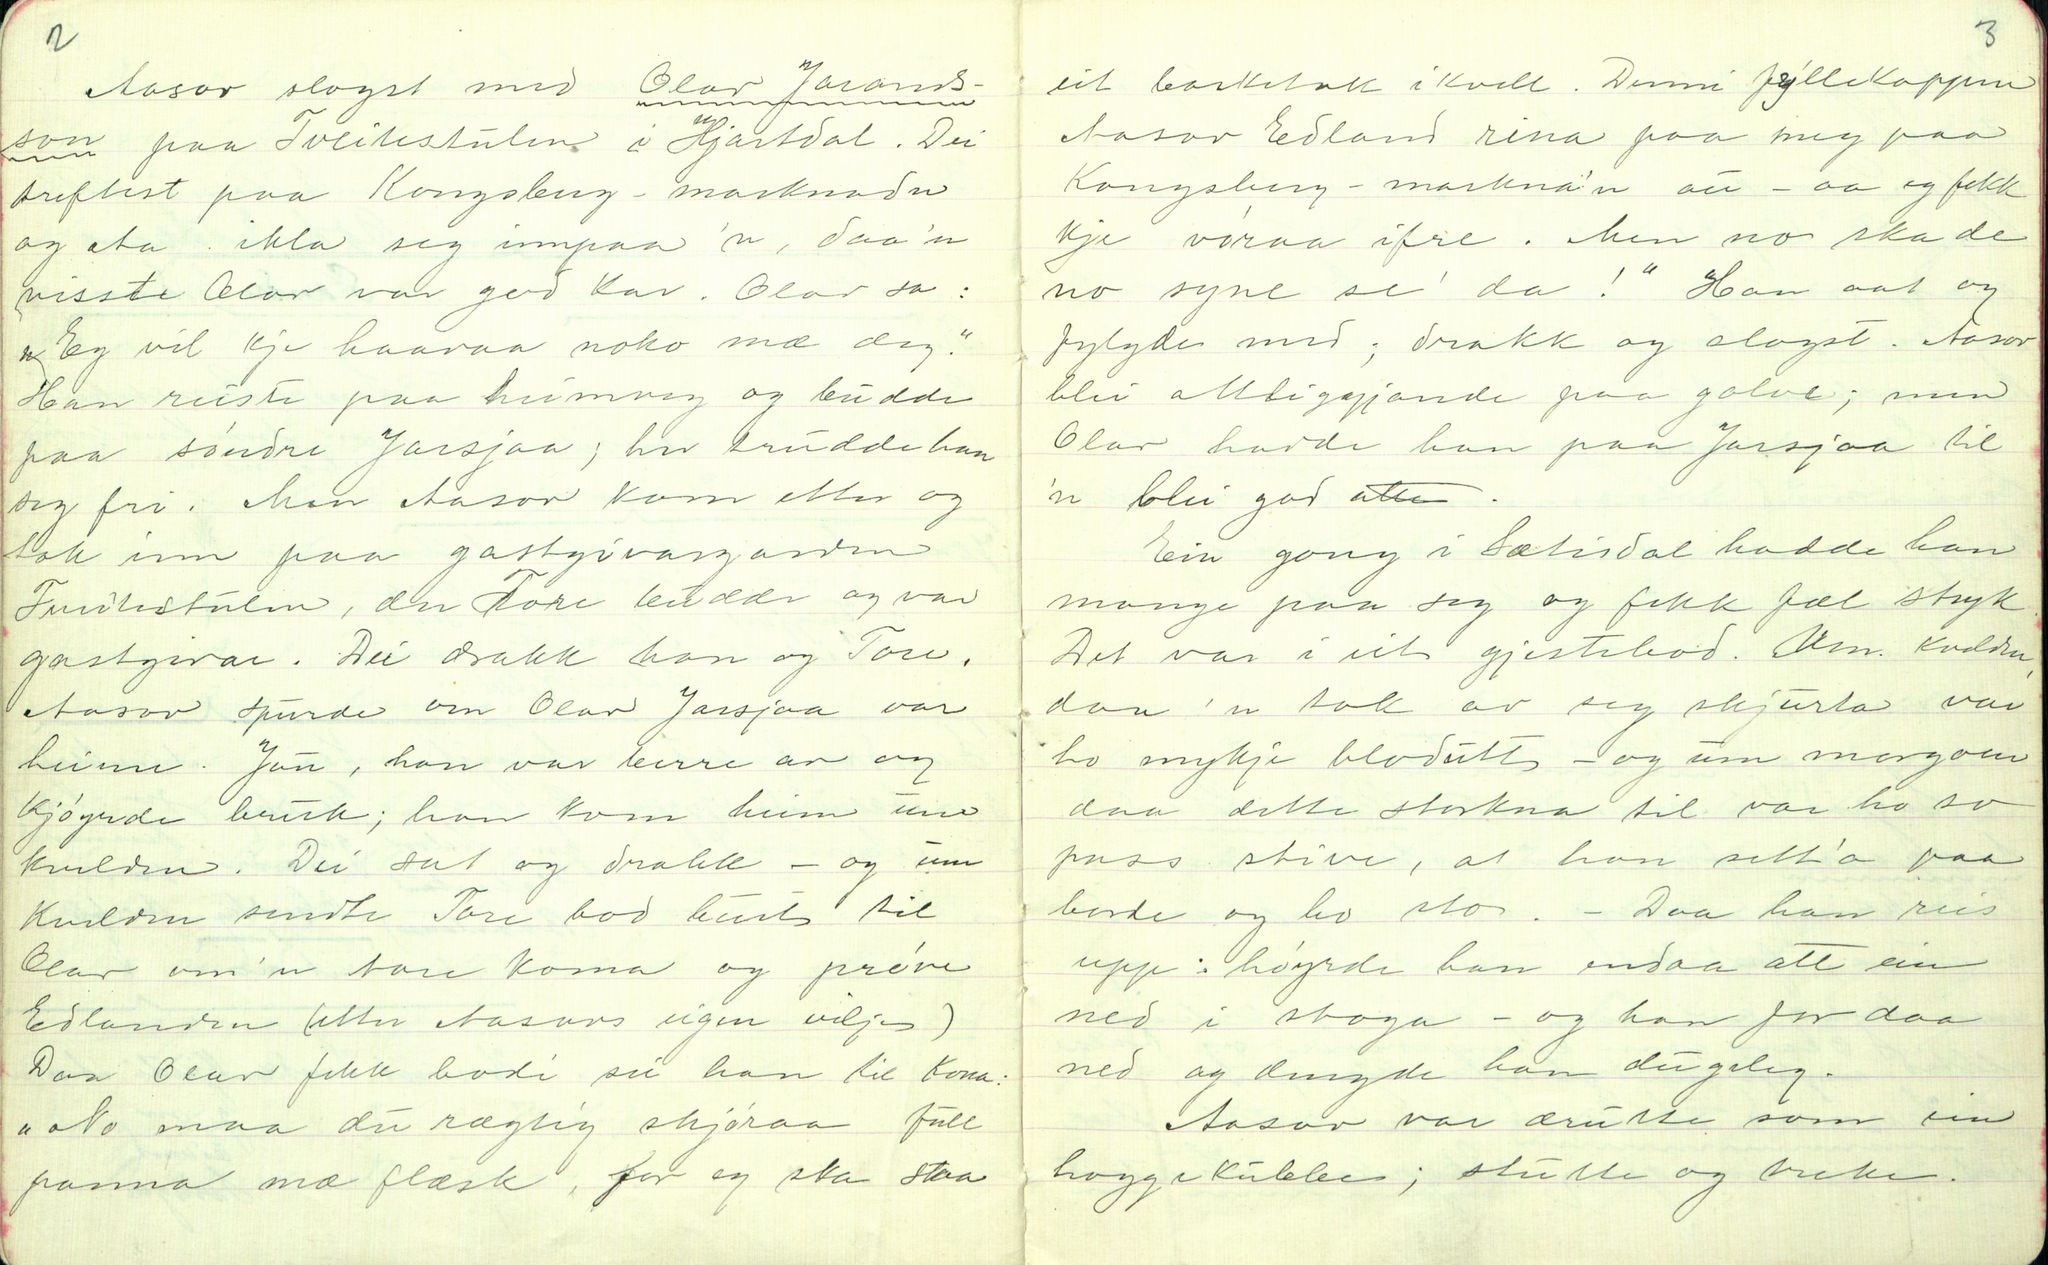 2
Aasov slogst med Olav Jarands-
son paa Tveitestulen i Hjartdal. Dei
treftest paa Kongsberg-marknaden
og Aa. ikla seg innpaa 'n, daa'n
visste Olav var god kar. Olav sa:
"Eg vil kje haavaa noko mæ deg."
Han reiste paa heimveg og budde
paa søndre Jarsjaa; her trudde han
seg fri. Men Aasov kom etter og
tok inn paa gastgivargarden
Tveitestulen, der Tore budde og var
gastgivar. Dei drakk han og Tore.
Aasov spurde om Olav Jarsjaa var
heime. Jau, han var berre av og
kjøyrde bruk; han kom heim um
kvelden. Dei sat og drakk - og um
kvelden sendte Tore bod burt til
Olav om'n tore koma og prøve
Edlanden (etter Aasovs eigen vilje)
Daa Olav fekk bodi sei han til kona:
"No maa du rægtig skjøraa full
panna mæ flæsk, for eg ska staa
3
eit basketak i kvell. Denni fyllekoppen
Aasov Edland reina paa meg paa
Kongsberg-markna'n au - aa eg fekk
kje vøraa ifre. Men no ska de
no syne se' da!" Han aat og
fylgde med; drakk og slogst. Aasov
blei attliggjande paa golve; men
Olav hadde han paa Jarsjaa til
'n blei god atte.
Ein gong i Sætisdal hadde han
mange paa seg og fekk fæl stryk.
Det var i eit gjestebod. Um kvelden,
daa 'n tok av seg skjurta var
ho mykje blodutt - og um morgoen
daa dette storkna til var ho so
pass stive, at han sett'a paa
borde og ho sto. - Daa han reis
upp: høyrde han endaa att ein
ned i stoga - og han for daa
ned og dengde han dugeleg.
Aasov var drutte som ein
hoggekubbe; stutte og breke.